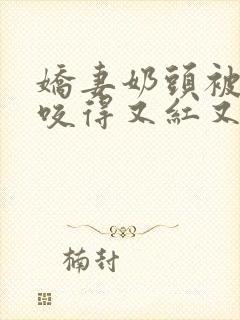 嬌妻奶頭被
咬得又紅又
楠封